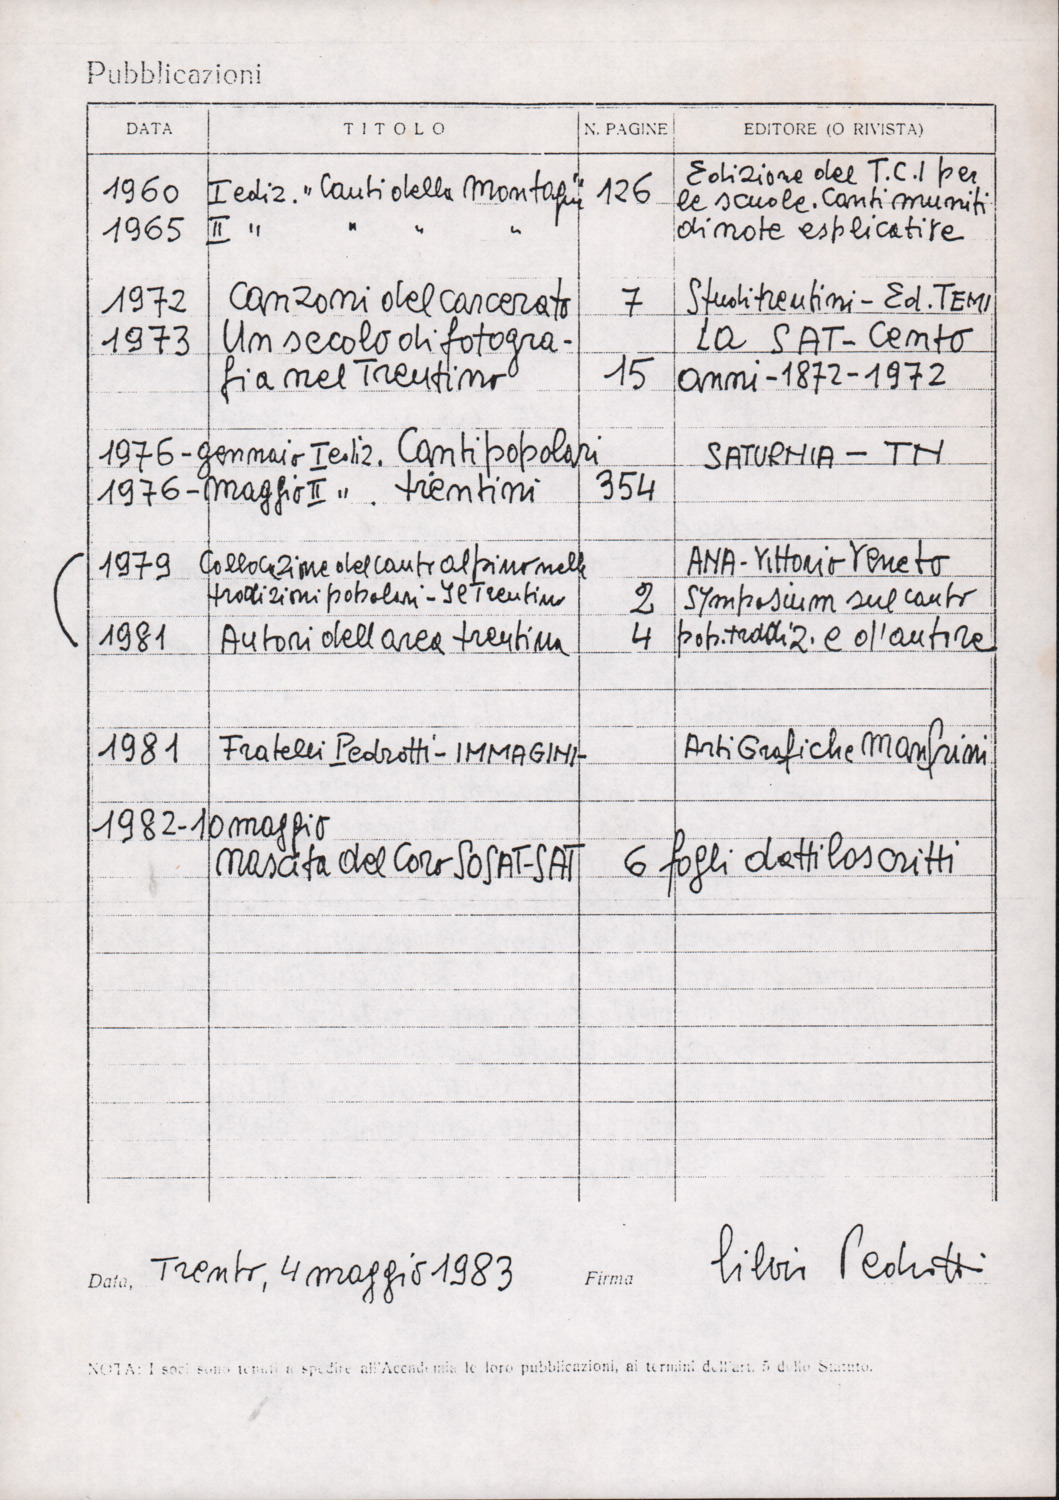 Pubblicazioni
DATA TITOLO N. PAGINE EDITORE (O RIVISTA)
1960 I ediz. "Canti della Montagna" 126 Edizione del T.C.I per
le scuole. Canti muniti
1965 II " " " " di note esplicative
1972 Canzoni del carcerato 7 Studi trentini - Ed. TEMI
1973 Un secolo di fotogra- La SAT - Cento
fia nel Trentino 15 anni - 1872 - 1972
1976 - gennaio I ediz. Canti popolari SATURNIA - TN
1976 - maggio II " . trentini 354
1979 Collocazione del canto alpino nelle ANA - Vittorio Veneto
tradizioni popolari - Il Trentino 2 Symposium sul canto
1981 Autori dell area trentina 4 pop. tradiz. e d'autore
1981 Fratelli Pedrotti - IMMAGINI - Arti Grafiche Manfrini
1982 - 10 maggio
nascita del Coro SOSAT-SAT 6 fogli dattiloscritti
Data, Trento, 4 maggio 1983 Firma Silvio Pedrotti
NOTA: I soci sono tenuti a spedire all'Accademia le loro pubblicazioni, ai termini dell'art. 5 dello Statuto.